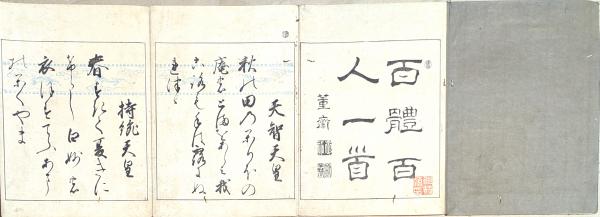 百體百
人一首
董齋
天智天皇
秋の田のかりほの
庵のとまをあらみ我
ころも手は露にぬ
れつゝ
持統天皇
春すきて夏きに
けらし白妙の
衣ほすてふあま
のかくやま